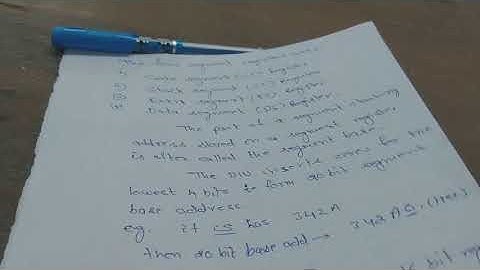 The four segment registers
1) Code segment (CS) Register
2) Stack segment (SS) Register
3) Extra segment (ES) Register
4) Data segment (DS) Register
The part of a segment starting
address stored in a segment register
is often called the segment base.
The BIU inserts zeros for the
lowest 4 bits to form 20 bit segment
base address.
eg. if CS has 342A
then 20 bit base add → 342A0.(Hex)
bit